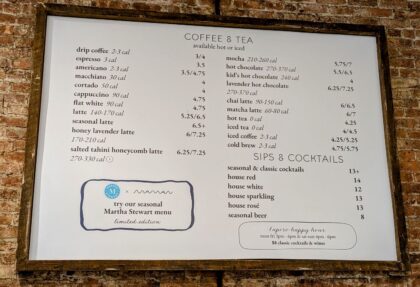 COFFEE & TEA
available hot or iced
drip coffee 2-3 cal 3/4
espresso 3 cal 3.5
americano 2-3 cal 3.5/4.75
macchiato 30 cal 4
cortado 50 cal 4
cappuccino 90 cal 4
flat white 90 cal 4.75
latte 140-170 cal 5.25/6.5
seasonal latte 6.5+
honey lavender latte 6/7.25
170-210 cal
salted tahini honeycomb latte 6.25/7.25
270-330 cal
mocha 210-260 cal 5.75/7
hot chocolate 270-370 cal 5.5/6.5
kid's hot chocolate 240 cal 4
lavender hot chocolate 6.25/7.25
270-370 cal
chai latte 90-150 cal 6/6.5
matcha latte 60-80 cal 6/7
hot tea 0 cal 4.25
iced tea 0 cal 4/4.5
iced coffee 2-3 cal 4.25/5.25
cold brew 2-3 cal 4.75/5.75
SIPS & COCKTAILS
seasonal & classic cocktails 13+
house red 14
house white 12
house sparkling 13
house rosé 13
seasonal beer 8
M x maman
try our seasonal
Martha Stewart menu
limited edition
l'apéro-happy hour
$8 classic cocktails & wines